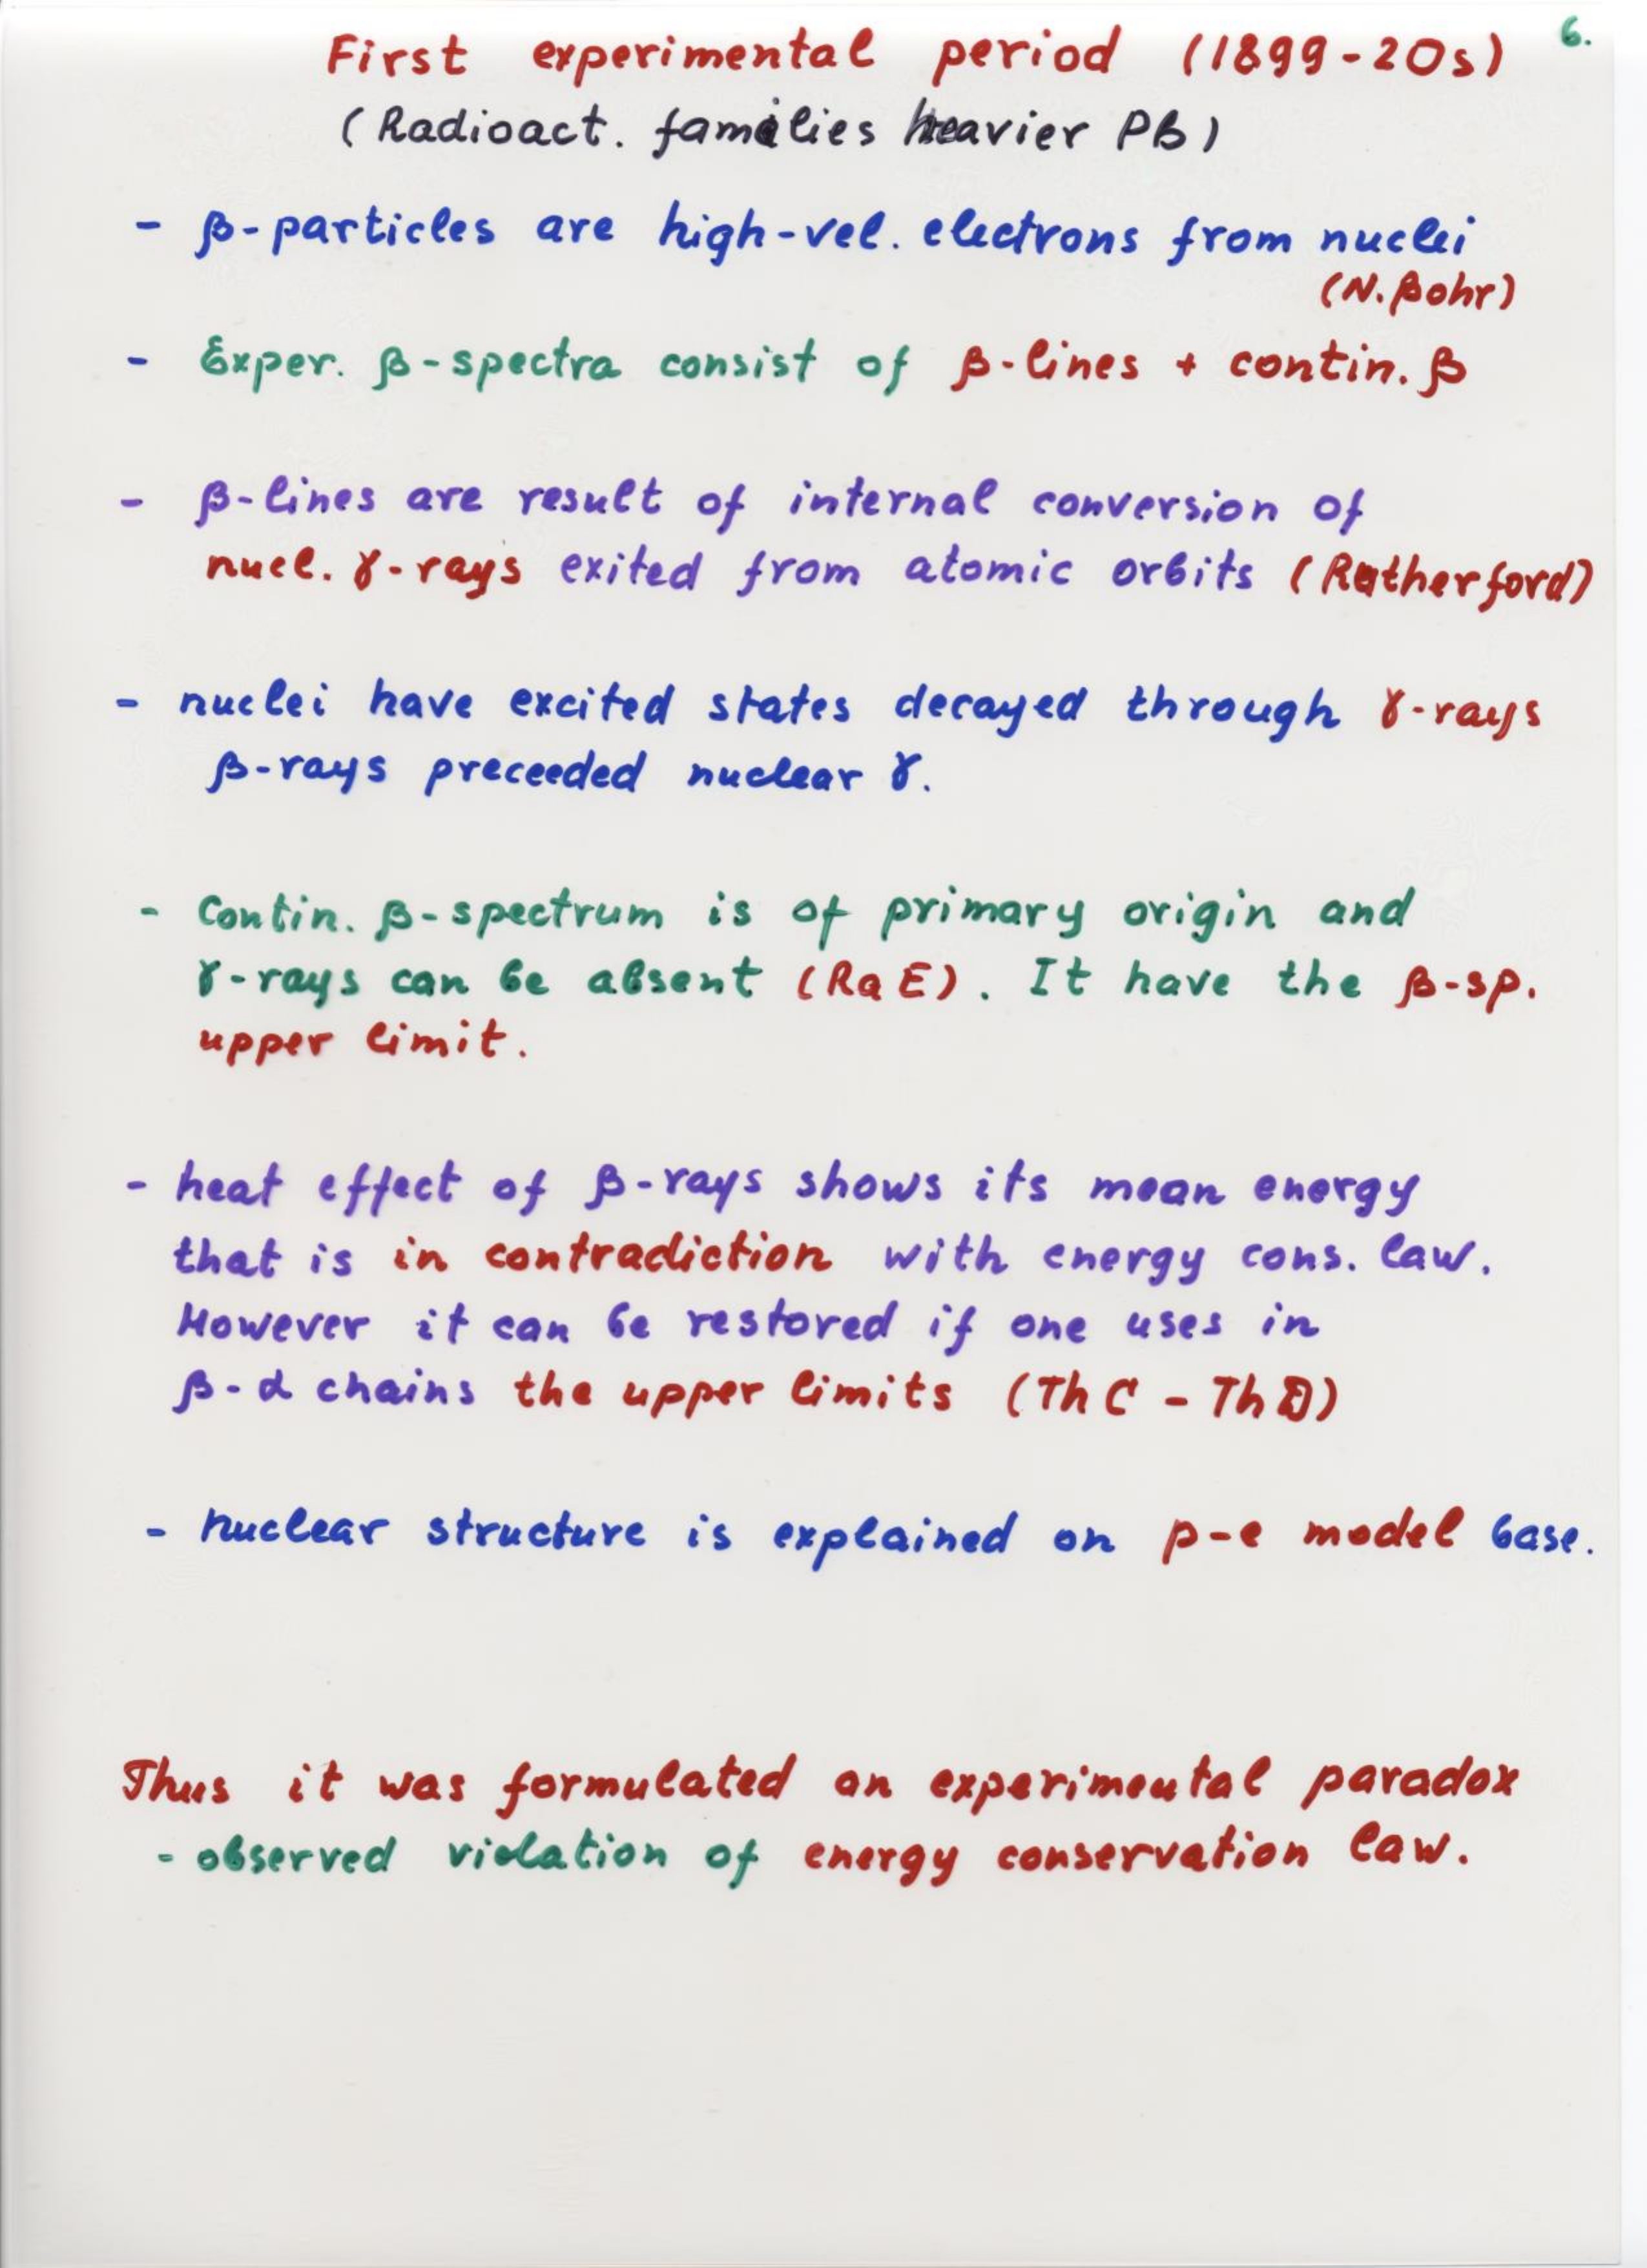 6.
First experimental period (1899-20s)
(Radioact. families heavier PB)
- β-particles are high-vel. electrons from nuclei
(N. Bohr)
- Exper. β-spectra consist of β-lines + contin. β
- β-lines are result of internal conversion of
nucl. γ-rays exited from atomic orbits (Rutherford)
- nuclei have excited states decayed through γ-rays
β-rays preceeded nuclear γ.
- Contin. β-spectrum is of primary origin and
γ-rays can be absent (RaE). It have the β-sp.
upper limit.
- heat effect of β-rays shows its mean energy
that is in contradiction with energy cons. law.
However it can be restored if one uses in
β-α chains the upper limits (ThC - ThD)
- nuclear structure is explained on p-e model base.
Thus it was formulated an experimental paradox
- observed violation of energy conservation law.